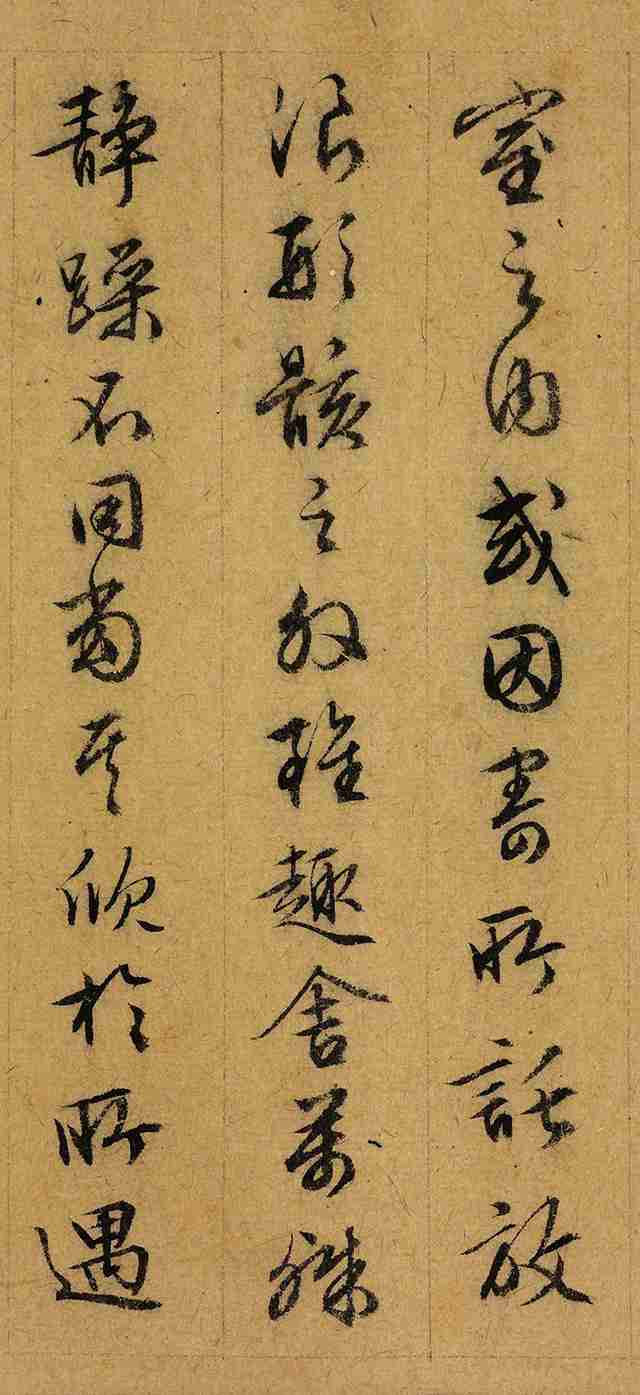 室之内或因寄所託放
浪形骸之外雖趣舍萬殊
静躁不同當其欣於所遇